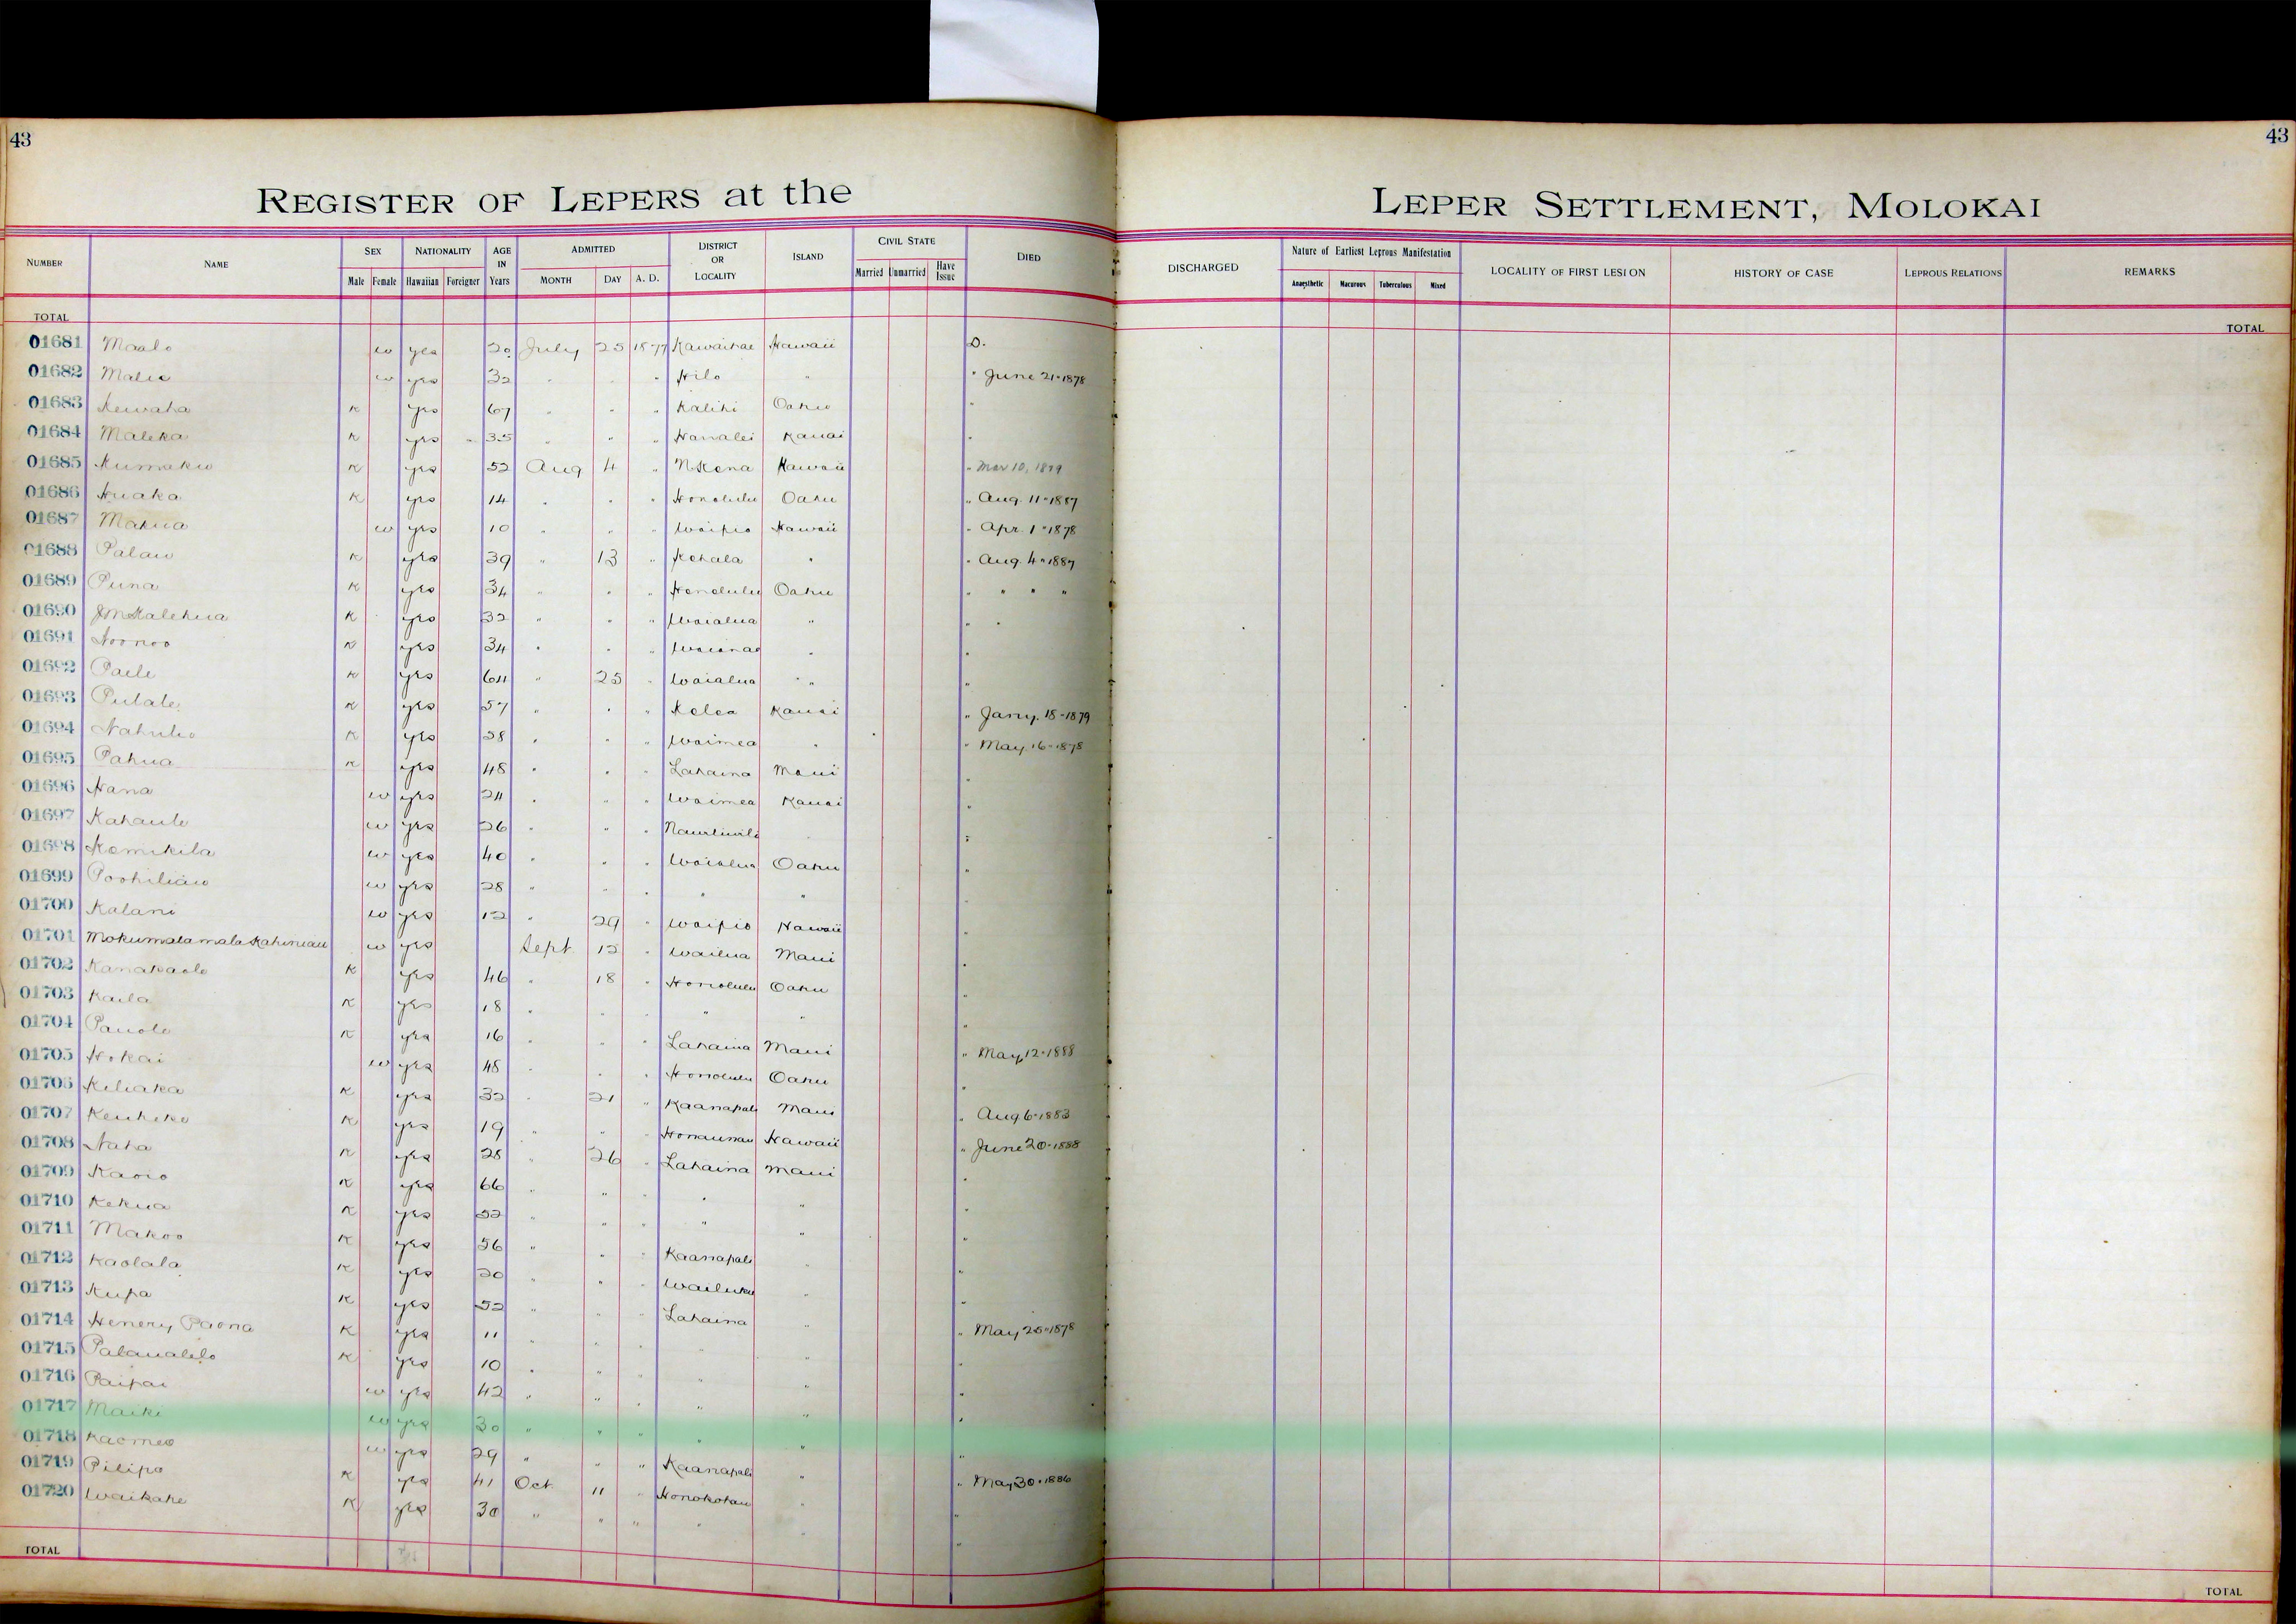 43
43
REGISTER OF LEPERS at the
LEPER SETTLEMENT, MOLOKAI
NUMBER NAME SEX NATIONALITY AGE IN Years ADMITTED DISTRICT OR LOCALITY ISLAND CIVIL STATE DIED DISCHARGED Nature of Earliest Leprous Manifestation LOCALITY OF FIRST LESION HISTORY OF CASE LEPROUS RELATIONS REMARKS
Male Female Hawaiian Foreigner MONTH DAY A. D. Married Unmarried Have Issue Anaesthetic Macurous Tuberculous Mixed
TOTAL TOTAL
01681 Maalo w yes 20 July 25 1877 Kawaihae Hawaii D.
01682 Malie w yes 32 " " " Hilo " " June 21-1878
01683 Kewaha K yes 67 " " " Kalihi Oahu "
01684 Maleka K yes 35 " " " Hanalei Kauai "
01685 Kumaku K yes 52 Aug 4 " N Kona Hawaii " Mar 10, 1879
01686 Huaka K yes 14 " " " Honolulu Oahu " Aug. 11-1887
01687 Makua w yes 10 " " " Waipio Hawaii " Apr. 1-1878
01688 Palau K yes 39 " 13 " Kohala " " Aug. 4-1887
01689 Puna K yes 34 " " " Honolulu Oahu " " " "
01690 J M Kalehua K yes 32 " " " Waialua " " "
01691 Noonoo K yes 34 " " " Waianae " "
01692 Paele K yes 64 " 25 " Waialua " " "
01693 Pulale K yes 57 " " " Kolea Kauai " Jany. 18-1879
01694 Nahulu K yes 28 " " " Waimea " " May. 16-1878
01695 Pahua K yes 48 " " " Lahaina Maui "
01696 Hana w yes 24 " " " Waimea Kauai "
01697 Kahaule w yes 26 " " " Nawiliwili "
01698 Kamikila w yes 40 " " " Waialua Oahu "
01699 Poohiliau w yes 28 " " " " "
01700 Kalani w yes 12 " 29 " Waipio Hawaii "
01701 Mokumalamala Kahiniau w yes Sept 12 " Wailua Maui "
01702 Kanakaole K yes 46 " 18 " Honolulu Oahu "
01703 Kaila K yes 18 " " " " " "
01704 Pauole K yes 16 " " " Lahaina Maui " May 12-1888
01705 Hokai w yes 48 " " " Honolulu Oahu "
01706 Keliaka K yes 32 " 21 " Kaanapali Maui " Aug 6-1883
01707 Keuheke K yes 19 " " " Honaunau Hawaii " June 20-1888
01708 Naha K yes 28 " 26 " Lahaina Maui "
01709 Kaoio K yes 66 " " " " " "
01710 Kekua K yes 52 " " " " " "
01711 Makoo K yes 56 " " " Kaanapali " "
01712 Kaolala K yes 20 " " " Wailuku " "
01713 Kupa K yes 52 " " " Lahaina " " May 25-1878
01714 Henery Paona K yes 11 " " " " " "
01715 Palaualelo K yes 10 " " " " " "
01716 Paipai w yes 42 " " " " " "
01717 Maiki w yes 30 " " " " " "
01718 Kaomea w yes 29 " " " Kaanapali " " May 30-1886
01719 Pilipo K yes 41 Oct 11 " Honokohau " "
01720 Waikahe K yes 30 " " " " " "
TOTAL TOTAL